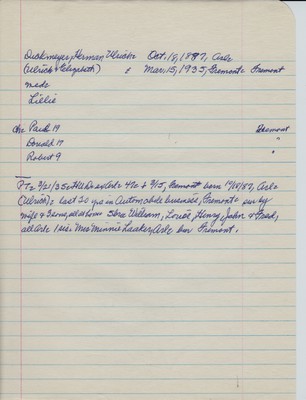 Dickmeyer, Herman Ulrich Oct. 18, 1887, Arle
(Ulrich & Elizabeth) d Mar. 15, 1935, Fremont Fremont
made
Lillie
Ch Paul 19 Fremont
Donald 17 "
Robert 9 "
FTo 3/21/35 Arle 47 Fremont born 10/18/87, Arle
(Ulrich); last 20 yrs in Automobile business, Fremont sur by
wife & 3 sons, all at home 5 bro William, Louie, Henry, John & Fred,
all Arle 1 sis Mrs Minnie Laaker, Arle bur Fremont.